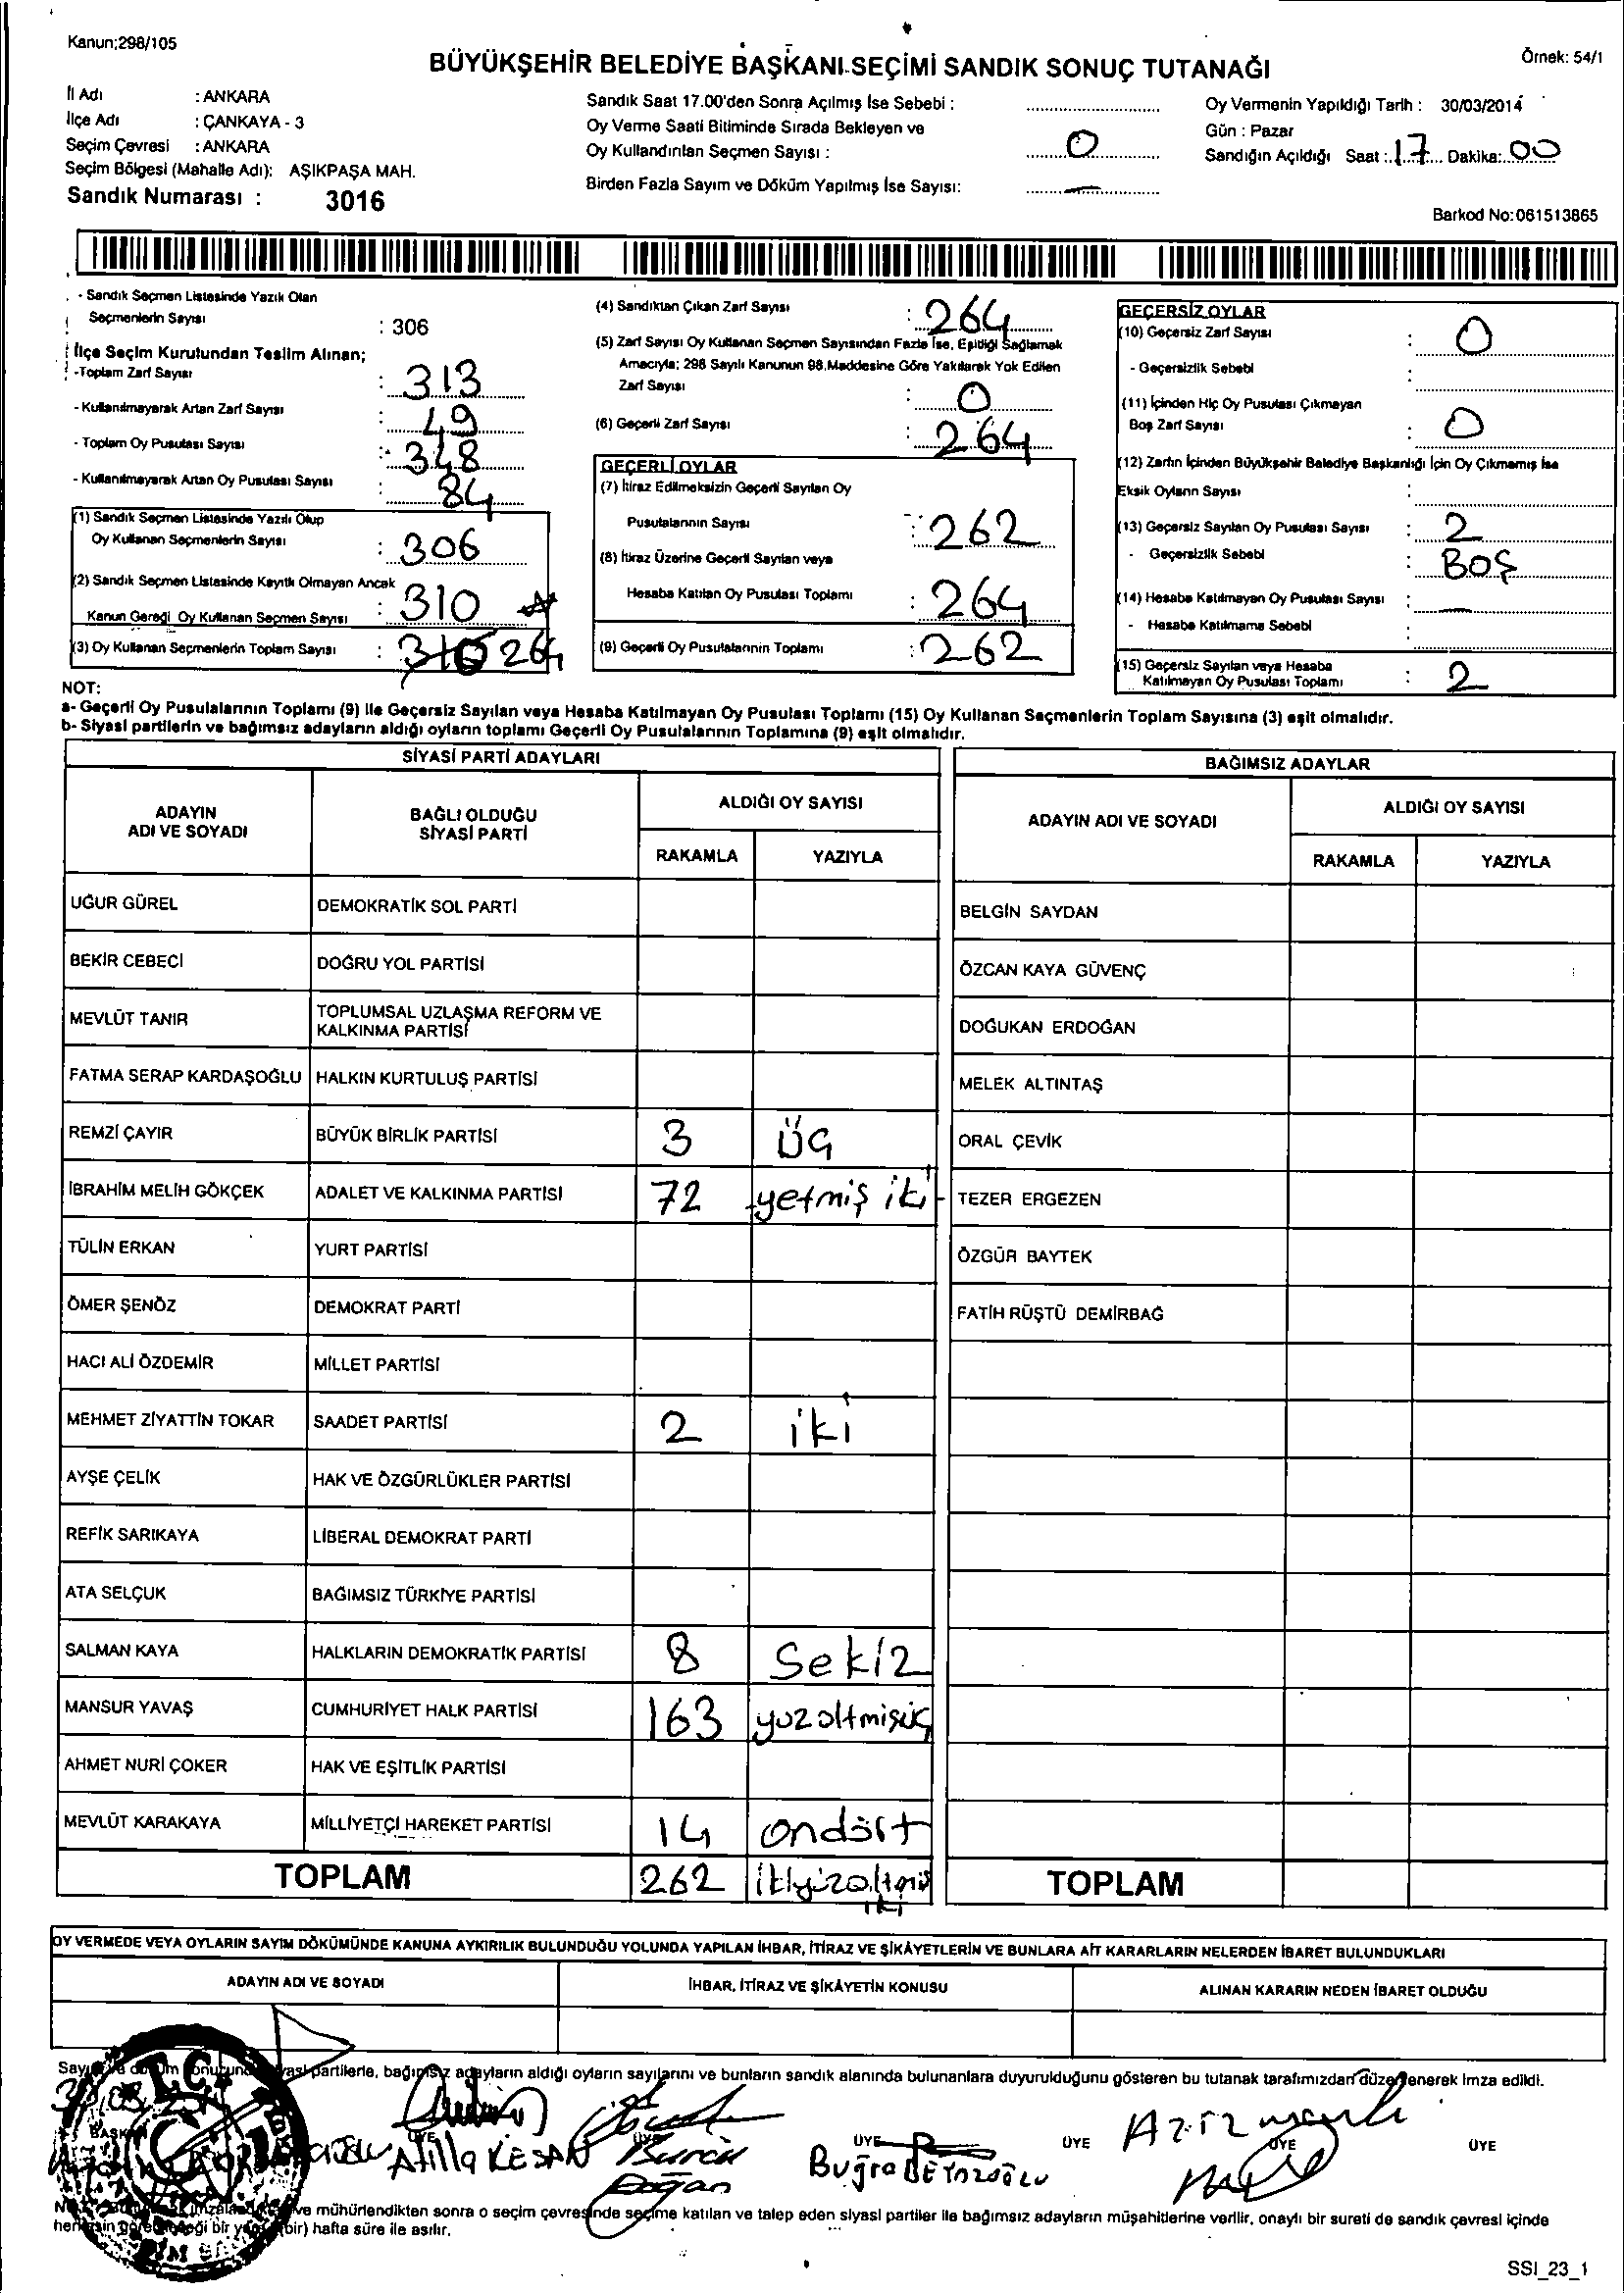 Kanun;298/105
BÜYÜKŞEHİR BELEDİYE BAŞKANI SEÇİMİ SANDIK SONUÇ TUTANAĞI
Örnek: 54/1
İl Adı : ANKARA
İlçe Adı : ÇANKAYA - 3
Seçim Çevresi : ANKARA
Seçim Bölgesi (Mahalle Adı): AŞIKPAŞA MAH.
Sandık Numarası : 3016
Sandık Saat 17.00'den Sonra Açılmış İse Sebebi :
Oy Verme Saati Bitiminde Sırada Bekleyen ve
Oy Kullandırılan Seçmen Sayısı : 0
Birden Fazla Sayım ve Döküm Yapılmış İse Sayısı: —
Oy Vermenin Yapıldığı Tarih : 30/03/2014
Gün : Pazar
Sandığın Açıldığı Saat : 17 Dakika: 00
Barkod No:061513865
- Sandık Seçmen Listesinde Yazılı Olan
Seçmenlerin Sayısı : 306
İlçe Seçim Kurulundan Teslim Alınan;
-Toplam Zarf Sayısı : 313
- Kullanılmayarak Artan Zarf Sayısı : 49
- Toplam Oy Pusulası Sayısı : 348
- Kullanılmayarak Artan Oy Pusulası Sayısı : 84
(1) Sandık Seçmen Listesinde Yazılı Olup
Oy Kullanan Seçmenlerin Sayısı : 306
(2) Sandık Seçmen Listesinde Kayıtlı Olmayan Ancak
Kanun Gereği Oy Kullanan Seçmen Sayısı : 310
(3) Oy Kullanan Seçmenlerin Toplam Sayısı : 310 264
(4) Sandıktan Çıkan Zarf Sayısı : 264
(5) Zarf Sayısı Oy Kullanan Seçmen Sayısından Fazla İse, Eşitliği Sağlamak
Amacıyla; 298 Sayılı Kanunun 98.Maddesine Göre Yakılarak Yok Edilen
Zarf Sayısı : 0
(6) Geçerli Zarf Sayısı : 264
GEÇERLİ OYLAR
(7) İtiraz Edilmeksizin Geçerli Sayılan Oy
Pusulalarının Sayısı : 262
(8) İtiraz Üzerine Geçerli Sayılan veya
Hesaba Katılan Oy Pusulası Toplamı : 264
(9) Geçerli Oy Pusulalarının Toplamı : 262
GEÇERSİZ OYLAR
(10) Geçersiz Zarf Sayısı : 0
- Geçersizlik Sebebi :
(11) İçinden Hiç Oy Pusulası Çıkmayan
Boş Zarf Sayısı : 0
(12) Zarfın İçinden Büyükşehir Belediye Başkanlığı İçin Oy Çıkmamış İse
Eksik Oyların Sayısı :
(13) Geçersiz Sayılan Oy Pusulası Sayısı : 2
- Geçersizlik Sebebi : BOŞ
(14) Hesaba Katılmayan Oy Pusulası Sayısı : —
- Hesaba Katılmama Sebebi :
(15) Geçersiz Sayılan veya Hesaba
Katılmayan Oy Pusulası Toplamı : 2
NOT:
a- Geçerli Oy Pusulalarının Toplamı (9) ile Geçersiz Sayılan veya Hesaba Katılmayan Oy Pusulası Toplamı (15) Oy Kullanan Seçmenlerin Toplam Sayısına (3) eşit olmalıdır.
b- Siyasi partilerin ve bağımsız adayların aldığı oyların toplamı Geçerli Oy Pusulalarının Toplamına (9) eşit olmalıdır.
SİYASİ PARTİ ADAYLARI
ADAYIN ADI VE SOYADI BAĞLI OLDUĞU SİYASİ PARTİ ALDIĞI OY SAYISI
RAKAMLA YAZIYLA
UĞUR GÜREL DEMOKRATİK SOL PARTİ
BEKİR CEBECİ DOĞRU YOL PARTİSİ
MEVLÜT TANIR TOPLUMSAL UZLAŞMA REFORM VE
KALKINMA PARTİSİ
FATMA SERAP KARDAŞOĞLU HALKIN KURTULUŞ PARTİSİ
REMZİ ÇAYIR BÜYÜK BİRLİK PARTİSİ 3 ÜÇ
İBRAHİM MELİH GÖKÇEK ADALET VE KALKINMA PARTİSİ 72 yetmiş iki
TÜLİN ERKAN YURT PARTİSİ
ÖMER ŞENÖZ DEMOKRAT PARTİ
HACI ALİ ÖZDEMİR MİLLET PARTİSİ
MEHMET ZİYATTİN TOKAR SAADET PARTİSİ 2 iki
AYŞE ÇELİK HAK VE ÖZGÜRLÜKLER PARTİSİ
REFİK SARIKAYA LİBERAL DEMOKRAT PARTİ
ATA SELÇUK BAĞIMSIZ TÜRKİYE PARTİSİ
SALMAN KAYA HALKLARIN DEMOKRATİK PARTİSİ 8 Sekiz
MANSUR YAVAŞ CUMHURİYET HALK PARTİSİ 163 yuzaltmişüç
AHMET NURİ ÇOKER HAK VE EŞİTLİK PARTİSİ
MEVLÜT KARAKAYA MİLLİYETÇİ HAREKET PARTİSİ 14 ondört
TOPLAM 262 ikiyüzaltmiş
iki
BAĞIMSIZ ADAYLAR
ADAYIN ADI VE SOYADI ALDIĞI OY SAYISI
RAKAMLA YAZIYLA
BELGİN SAYDAN
ÖZCAN KAYA GÜVENÇ
DOĞUKAN ERDOĞAN
MELEK ALTINTAŞ
ORAL ÇEVİK
TEZER ERGEZEN
ÖZGÜR BAYTEK
FATİH RÜŞTÜ DEMİRBAĞ
TOPLAM
OY VERMEDE VEYA OYLARIN SAYIM DÖKÜMÜNDE KANUNA AYKIRILIK BULUNDUĞU YOLUNDA YAPILAN İHBAR, İTİRAZ VE ŞİKÂYETLERİN VE BUNLARA AİT KARARLARIN NELERDEN İBARET BULUNDUKLARI
ADAYIN ADI VE SOYADI İHBAR, İTİRAZ VE ŞİKÂYETİN KONUSU ALINAN KARARIN NEDEN İBARET OLDUĞU
partilerle, bağımsız adayların aldığı oyların sayılarını ve bunların sandık alanında bulunanlara duyurulduğunu gösteren bu tutanak tarafımızdan düzenlenerek imza edildi.
BAŞKAN ÜYE ÜYE ÜYE ÜYE ÜYE ÜYE
Atilla KESAN Burcu Doğan Buğra BEYAZOĞLU Aziz
ve mühürlendikten sonra o seçim çevresinde seçime katılan ve talep eden siyasi partiler ile bağımsız adayların müşahitlerine verilir, onaylı bir sureti de sandık çevresi içinde
bir) hafta süre ile asılır.
SSI_23_1